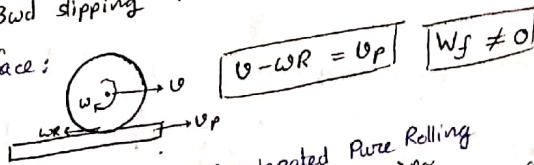 Bwd slipping
ace :
v - ωR = v_P
W_f ≠ 0
ω
v
ωR
v_P
Pure Rolling